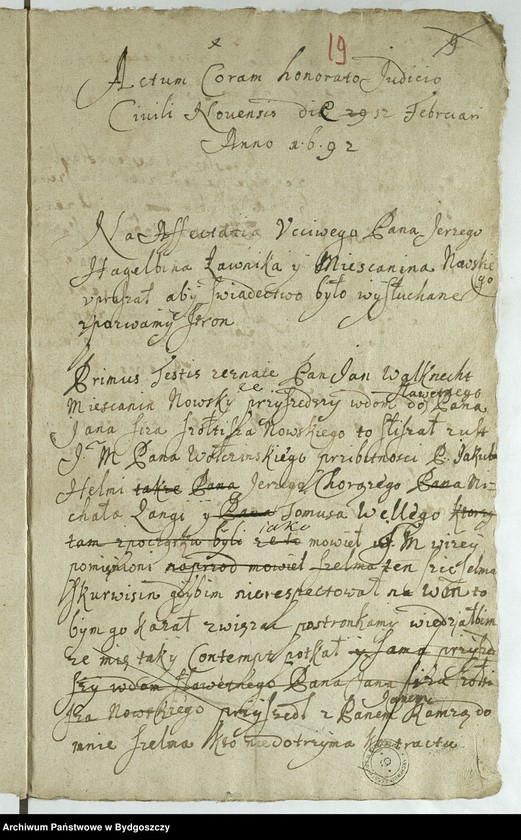 19 9
Actum Coram honorato Judicio
Civili Novensis die 29 Februari
Anno 1692
Na Uciwego Pana Jerzego
Hagelbina Ławnika y Miescanina Nowskie
go
upraszał aby swiadectwo było wysłuchane
stron
Primus Testis zeznaie Pan Jan Walknecht
Miescanin Nowsky przyszedszy w dom Sławetnego Pana
Jana Nowskiego to sliszał z ust
J M Pana Wołczinskiego przi bitnosci P. Jakuba
Helmi takze Pana Jerzego Chorązego Pana Mi-
chała Langi y Pana Tomusa Wellego ktorzy
jako
tam byli ze to mowieł J M wizey
pomięnioni naprzod mowieł szelma ten
skurwisin gdybim nie respectował na w m to
bym go kazał związać postronkamy wiedziałbim
ze mię taky Contempt potkał y sama przysze
szy w dom Sławetnego Pana Jana
Nowskiego przyszedł z Panem Janem Kamrą do
mnie szelma kto nie dotrzyma kontractu
Archiwum Państwowe w Bydgoszczy